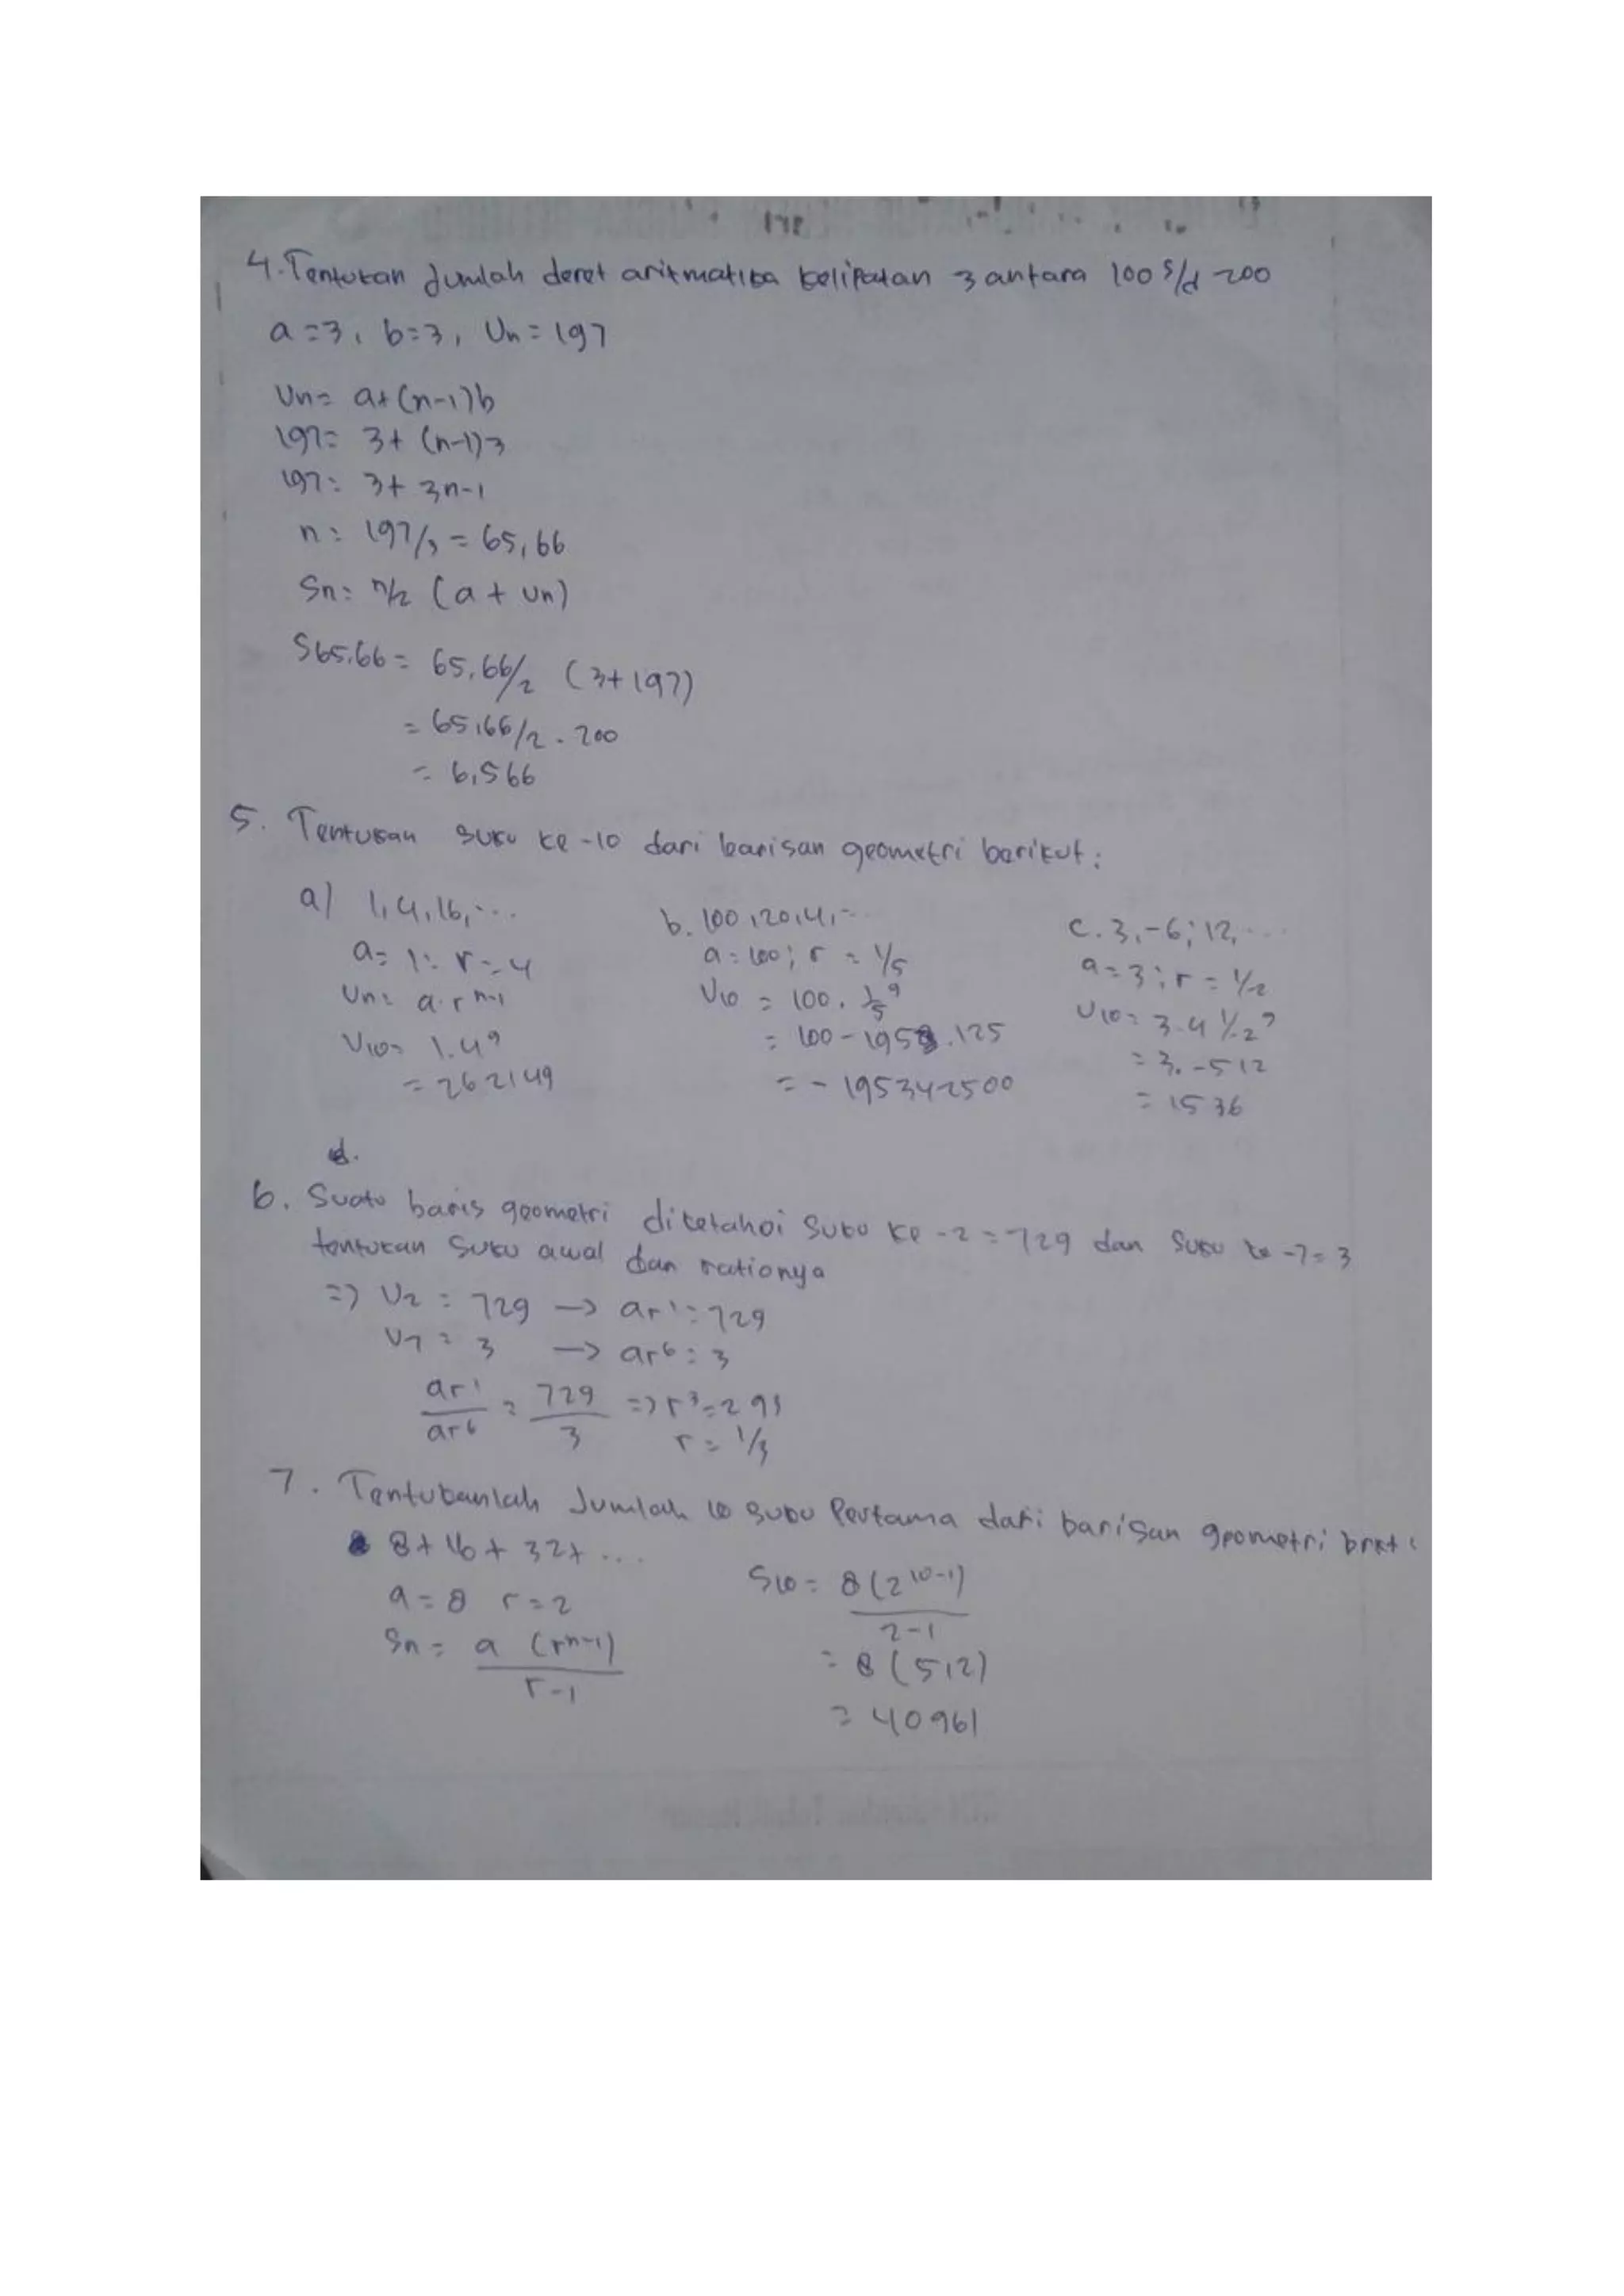 4. Tentukan Jumlah deret aritmatika kelipatan 3 antara 100 s/d 200
a = 3, b = 3, Un = 197
Un = a + (n-1)b
197 = 3 + (n-1)3
197 = 3 + 3n-1
n = 197/3 = 65,66
Sn = n/2 (a + Un)
S65,66 = 65,66/2 (3+197)
= 65,66/2 . 200
= 6,566
5. Tentukan suku ke-10 dari barisan geometri berikut:
a) 1,4,16,...
a = 1; r = 4
Un = a.r^n-1
U10 = 1.4^9
= 262149
b. 100,20,4,...
a = 100; r = 1/5
U10 = 100. 1/5^9
= 100-1953.125
= -195342500
c. 3,-6; 12, ...
a = 3; r = 1/-2
U10 = 3.4 1/-2^9
= 3.-512
= 1536
d.
6. Suatu baris geometri diketahoi suku ke-2 = 729 dan suku ke-7 = 3
tentukan suku awal dan rationya
=> U2 = 729 -> ar^1 = 729
U7 = 3 -> ar^6 = 3
ar^1/ar^6 = 729/3 => r^3 = 293
r = 1/3
7. Tentukanlah Jumlah 10 suku Pertama dari barisan geometri brkt:
8 + 16 + 32 + ...
a = 8 r = 2
Sn = a (r^n-1)/r-1
S10 = 8(2^10-1)/2-1
= 8(512)
= 40961